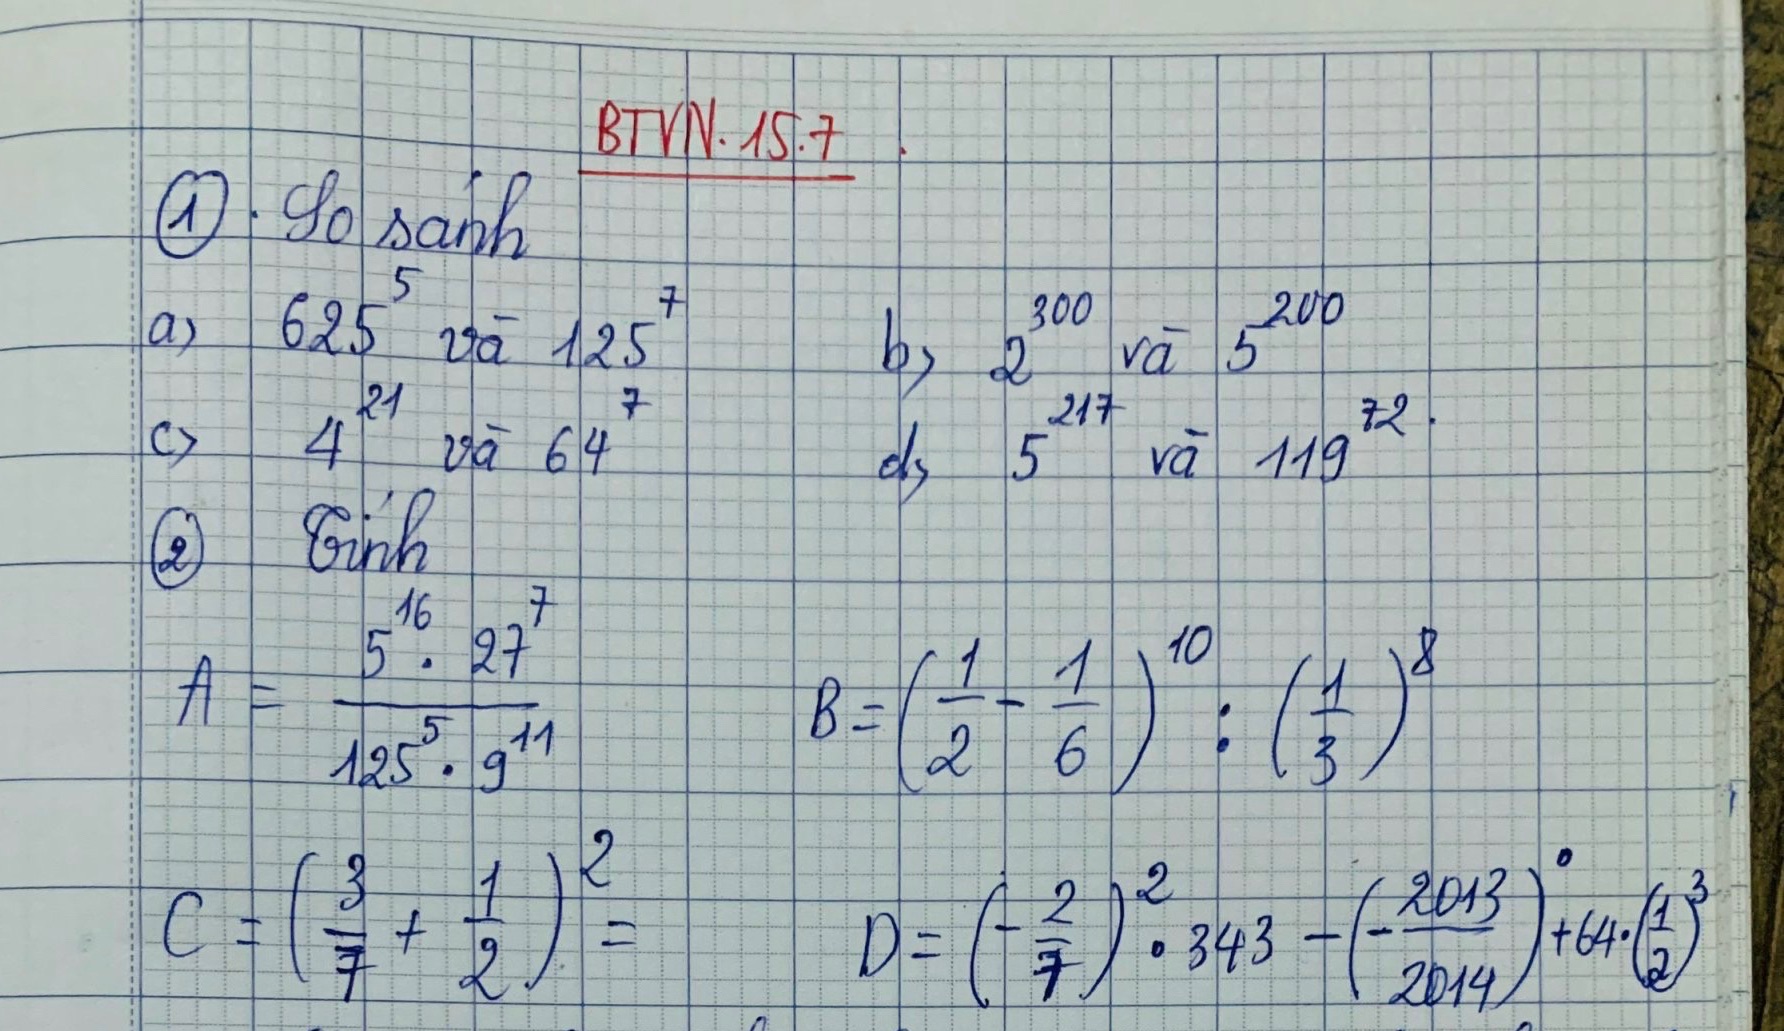 BTVN. 15.7
① . So sánh
a) 625^5 và 125^7 b) 2^300 và 5^200
c) 4^21 và 64^7 d) 5^217 và 119^72.
② Tính
A = (5^16 . 27^7) / (125^5 . 9^11) B = (1/2 - 1/6)^10 : (1/3)^8
C = (3/7 + 1/2)^2 = D = (-2/7)^2 . 343 - (-2013/2014)^0 + 64 . (1/2)^3